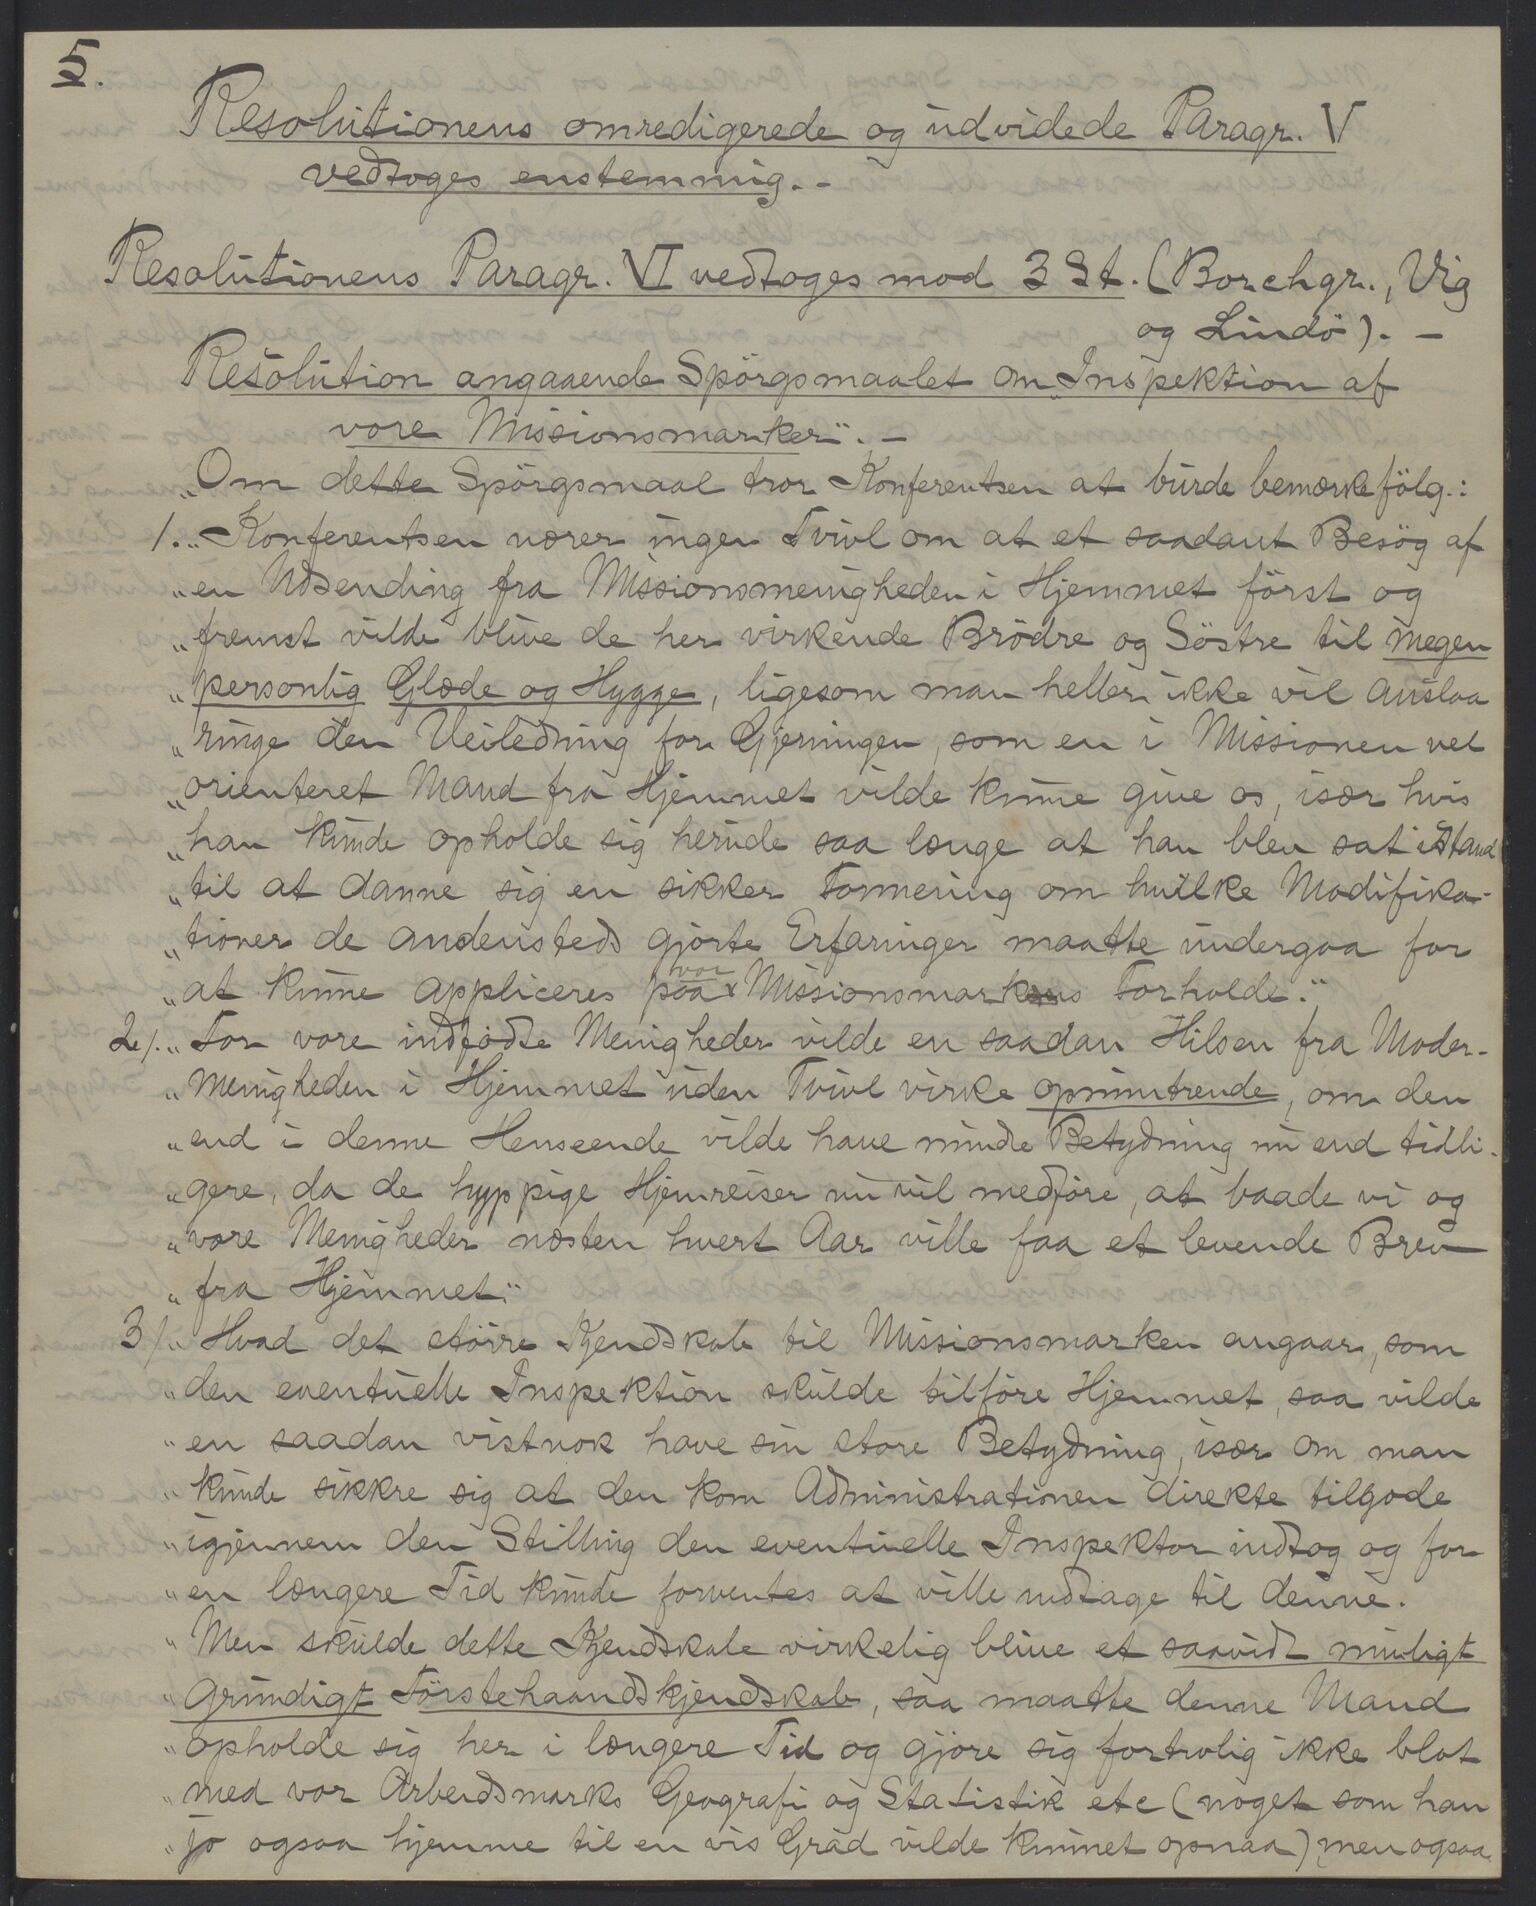 5.
Resolutionens omredigerede og udvidede Paragr. V
vedtoges enstemmig. -
Resolutionens Paragr. VI vedtoges mod 3 St. (Borchgr., Vig
og Lindö). -
Resolution angaaende Spörgsmaalet om „Inspektion af
vore Missionsmarker“. -
„Om dette Spörgsmaal tror Konferentsen at burde bemærke fölg.:
1. „Konferentsen nærer ingen Tvivl om at et saadant Besög af
„en Udsending fra Missionsmenigheden i Hjemmet först og
„fremst vilde blive de her virkende Brödre og Söstre til megen
„personlig Glæde og Hygge, ligesom man heller ikke vil anslaa
„ringe den Veiledning for Gjerningen, som en i Missionen vel
„orienteret Mand fra Hjemmet vilde kunne give os, især hvis
„han kunde opholde sig herude saa længe at han blev sat istand
„til at danne sig en sikker Formening om hvilke Modifika-
„tioner de andensteds gjorte Erfaringer maatte undergaa for
„at kunne appliceres paa vor Missionsmarks Forholde.“
2/. „For vore indfödte Menigheder vilde en saadan Hilsen fra Moder-
„Menigheden i Hjemmet uden Tvivl virke opmuntrende, om den
„end i denne Henseende vilde have mindre Betydning nu end tidli-
„gere, da de hyppige Hjemreiser nu vil medföre, at baade vi og
„vore Menigheder næsten hvert Aar ville faa et levende Brev
„fra Hjemmet.“
3/. „Hvad det större Kjendskab til Missionsmarken angaar, som
„den eventuelle Inspektion skulde tilföre Hjemmet, saa vilde
„en saadan vistnok have sin store Betydning, især om man
„kunde sikkre sig at den kom Administrationen direkte tilgode
„igjennem den Stilling den eventuelle Inspektor indtog og for
„en længere Tid kunde forventes at ville indtage til denne.
„Men skulde dette Kjendskab virkelig blive et saavidt muligt
„grundigt Förstehaandskjendskab, saa maatte denne Mand
„opholde sig her i længere Tid og gjöre sig fortrolig ikke blot
„med vor Arbeidsmarks Geografi og Statistik etc (noget som han
„jo ogsaa hjemme til en vis Grad vilde kunnet opnaa) men ogsaa